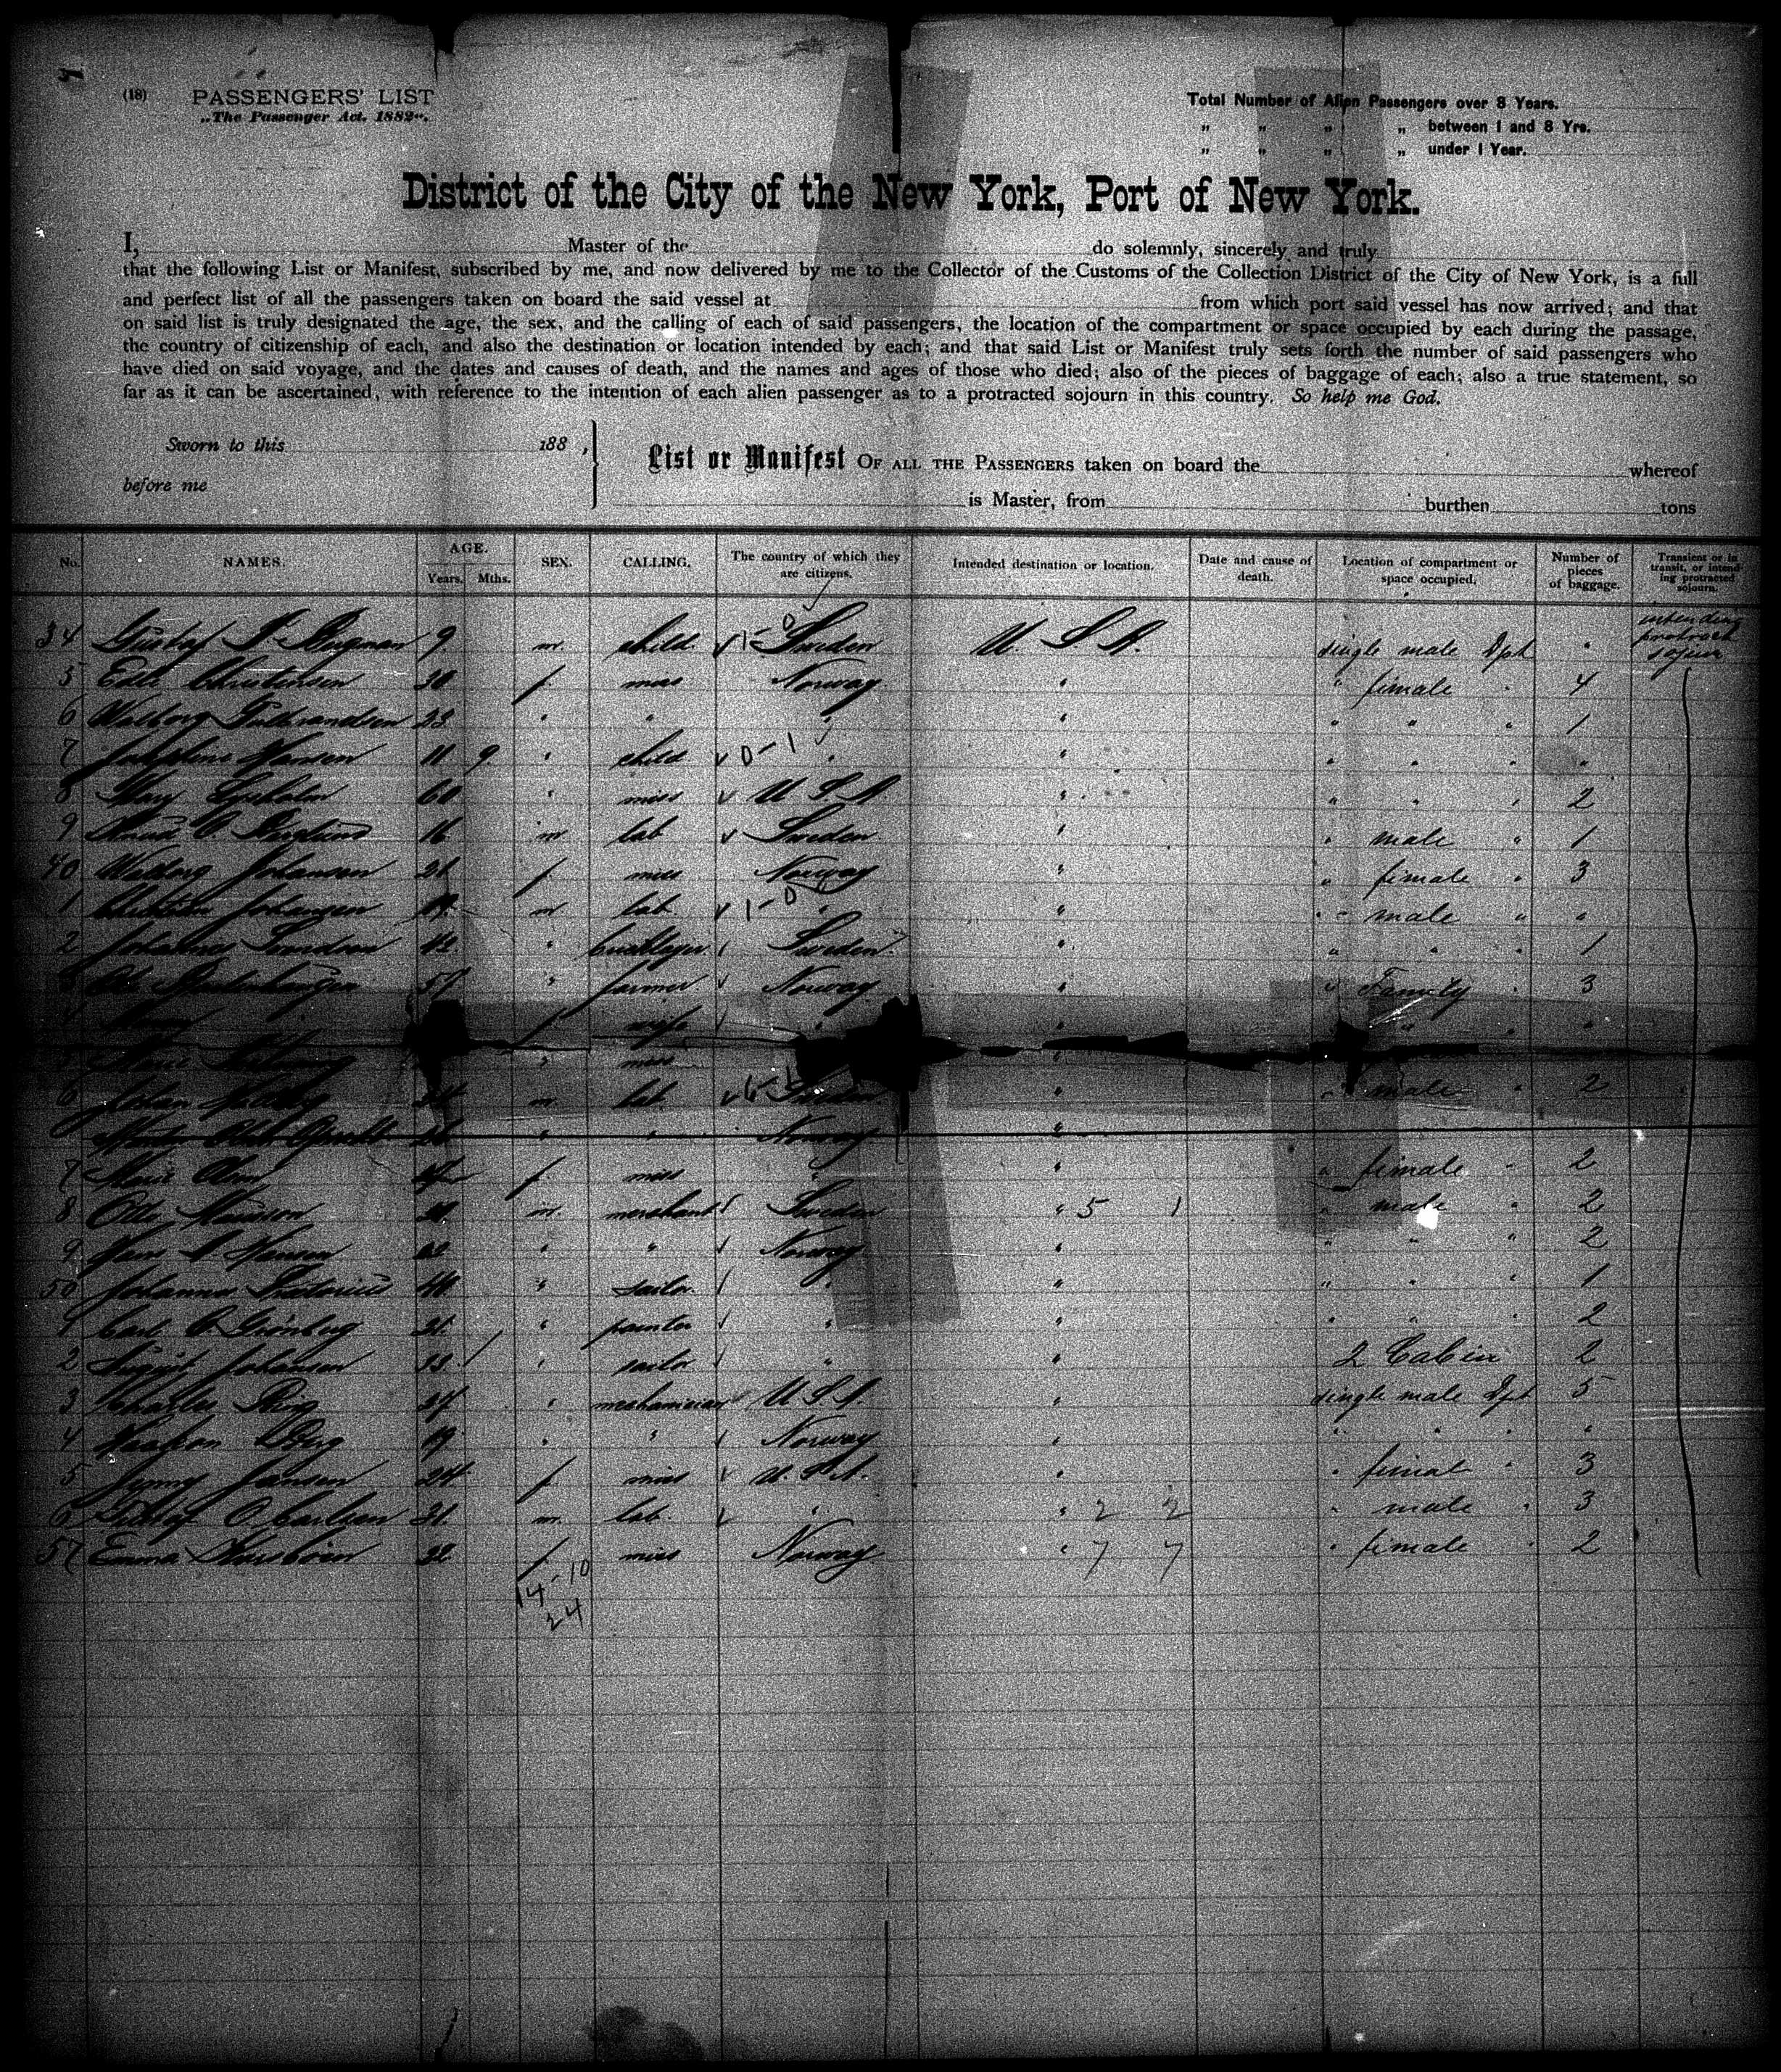 (18) PASSENGERS' LIST
„The Passenger Act. 1882“.
Total Number of Alien Passengers over 8 Years.
„ „ „ „ between 1 and 8 Yrs.
„ „ „ „ under 1 Year.
District of the City of the New York, Port of New York.
I, Master of the do solemnly, sincerely and truly
that the following List or Manifest, subscribed by me, and now delivered by me to the Collector of the Customs of the Collection District of the City of New York, is a full
and perfect list of all the passengers taken on board the said vessel at from which port said vessel has now arrived; and that
on said list is truly designated the age, the sex, and the calling of each of said passengers, the location of the compartment or space occupied by each during the passage,
the country of citizenship of each, and also the destination or location intended by each; and that said List or Manifest truly sets forth the number of said passengers who
have died on said voyage, and the dates and causes of death, and the names and ages of those who died; also of the pieces of baggage of each; also a true statement, so
far as it can be ascertained, with reference to the intention of each alien passenger as to a protracted sojourn in this country. So help me God.
Sworn to this 188 ,
before me
List or Manifest OF ALL THE PASSENGERS taken on board the whereof
is Master, from burthen tons
No. NAMES. AGE. Years. Mths. SEX. CALLING. The country of which they are citizens. Intended destination or location. Date and cause of death. Location of compartment or space occupied. Number of pieces of baggage. Transient or in transit, or intending protracted sojourn.
34 Gustaf Bergman 9 m. child. 1-0 Sweden U. S. A. single male Dpt " intending protract sojurn
5 Christensen f. miss Norway " " female " 4
6 Walborg Gulbrandsen 23 " " " " " " " 1
7 Josephine Hansen 11 9 " child 0-1 " " " " " "
8 Mary 60 " miss U. S. A " " " " 2
9 16 m lab Sweden " " male " 1
40 Walborg Johansen 21 f. miss Norway " " female " 3
1 Johansen m. lab. 1-0 " " " male " "
2 Johannes 42 " Sweden " " " " 1
3 57 " farmer Norway " " Family " 3
4 f. wife " " " " "
5 " miss "
6 Johan m. lab. Sweden " " male " 2
26 " " Norway "
7 Marie f. miss " " " female " 2
8 Otto m. merchant Sweden " 5 1 " male " 2
9 Hans Hansen " " Norway " " " " 2
50 Johannes 40 " sailor. " " " " " 1
1 Carl Grönberg 21. " painter " " " " 2
2 August Johansen 23. " sailor " " 2 Cabin 2
3 Charles Berg 27 " mechanician U. S. A. " single male Dpt 5
4 Haakon Berg 19 " " Norway " " " " "
5 Jenny Jansen 24. f. miss U. S. A. " " female " 3
6 O Carlsen 31. m. lab. " " 2 2 " male " 3
57 Emma 32. f. miss Norway " 7 7 " female " 2
14-10
24